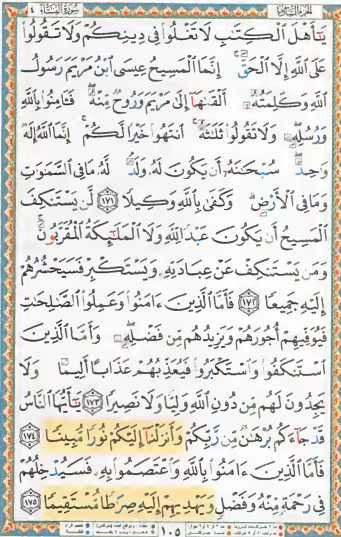 سُورَةُ النِّسَاءِ ٤
يَٰٓأَهۡلَ ٱلۡكِتَٰبِ لَا تَغۡلُواْ فِي دِينِكُمۡ وَلَا تَقُولُواْ
عَلَى ٱللَّهِ إِلَّا ٱلۡحَقَّۚ إِنَّمَا ٱلۡمَسِيحُ عِيسَى ٱبۡنُ مَرۡيَمَ رَسُولُ
ٱللَّهِ وَكَلِمَتُهُۥٓ أَلۡقَىٰهَآ إِلَىٰ مَرۡيَمَ وَرُوحٞ مِّنۡهُۖ فَـَٔامِنُواْ بِٱللَّهِ
وَرُسُلِهِۦۖ وَلَا تَقُولُواْ ثَلَٰثَةٌۚ ٱنتَهُواْ خَيۡرٗا لَّكُمۡۚ إِنَّمَا ٱللَّهُ إِلَٰهٞ
وَٰحِدٞۖ سُبۡحَٰنَهُۥٓ أَن يَكُونَ لَهُۥ وَلَدٞۘ لَّهُۥ مَا فِي ٱلسَّمَٰوَٰتِ
وَمَا فِي ٱلۡأَرۡضِۗ وَكَفَىٰ بِٱللَّهِ وَكِيلٗا ١٧١ لَّن يَسۡتَنكِفَ
ٱلۡمَسِيحُ أَن يَكُونَ عَبۡدٗا لِّلَّهِ وَلَا ٱلۡمَلَٰٓئِكَةُ ٱلۡمُقَرَّبُونَۚ
وَمَن يَسۡتَنكِفۡ عَنۡ عِبَادَتِهِۦ وَيَسۡتَكۡبِرۡ فَسَيَحۡشُرُهُمۡ
إِلَيۡهِ جَمِيعٗا ١٧٢ فَأَمَّا ٱلَّذِينَ ءَامَنُواْ وَعَمِلُواْ ٱلصَّٰلِحَٰتِ
فَيُوَفِّيهِمۡ أُجُورَهُمۡ وَيَزِيدُهُم مِّن فَضۡلِهِۦۖ وَأَمَّا ٱلَّذِينَ
ٱسۡتَنكَفُواْ وَٱسۡتَكۡبَرُواْ فَيُعَذِّبُهُمۡ عَذَابًا أَلِيمٗا وَلَا
يَجِدُونَ لَهُم مِّن دُونِ ٱللَّهِ وَلِيّٗا وَلَا نَصِيرٗا ١٧٣ يَٰٓأَيُّهَا ٱلنَّاسُ
قَدۡ جَآءَكُم بُرۡهَٰنٞ مِّن رَّبِّكُمۡ وَأَنزَلۡنَآ إِلَيۡكُمۡ نُورٗا مُّبِينٗا ١٧٤
فَأَمَّا ٱلَّذِينَ ءَامَنُواْ بِٱللَّهِ وَٱعۡتَصَمُواْ بِهِۦ فَسَيُدۡخِلُهُمۡ
فِي رَحۡمَةٖ مِّنۡهُ وَفَضۡلٖ وَيَهۡدِيهِمۡ إِلَيۡهِ صِرَٰطٗا مُّسۡتَقِيمٗا ١٧٥
١٠٥